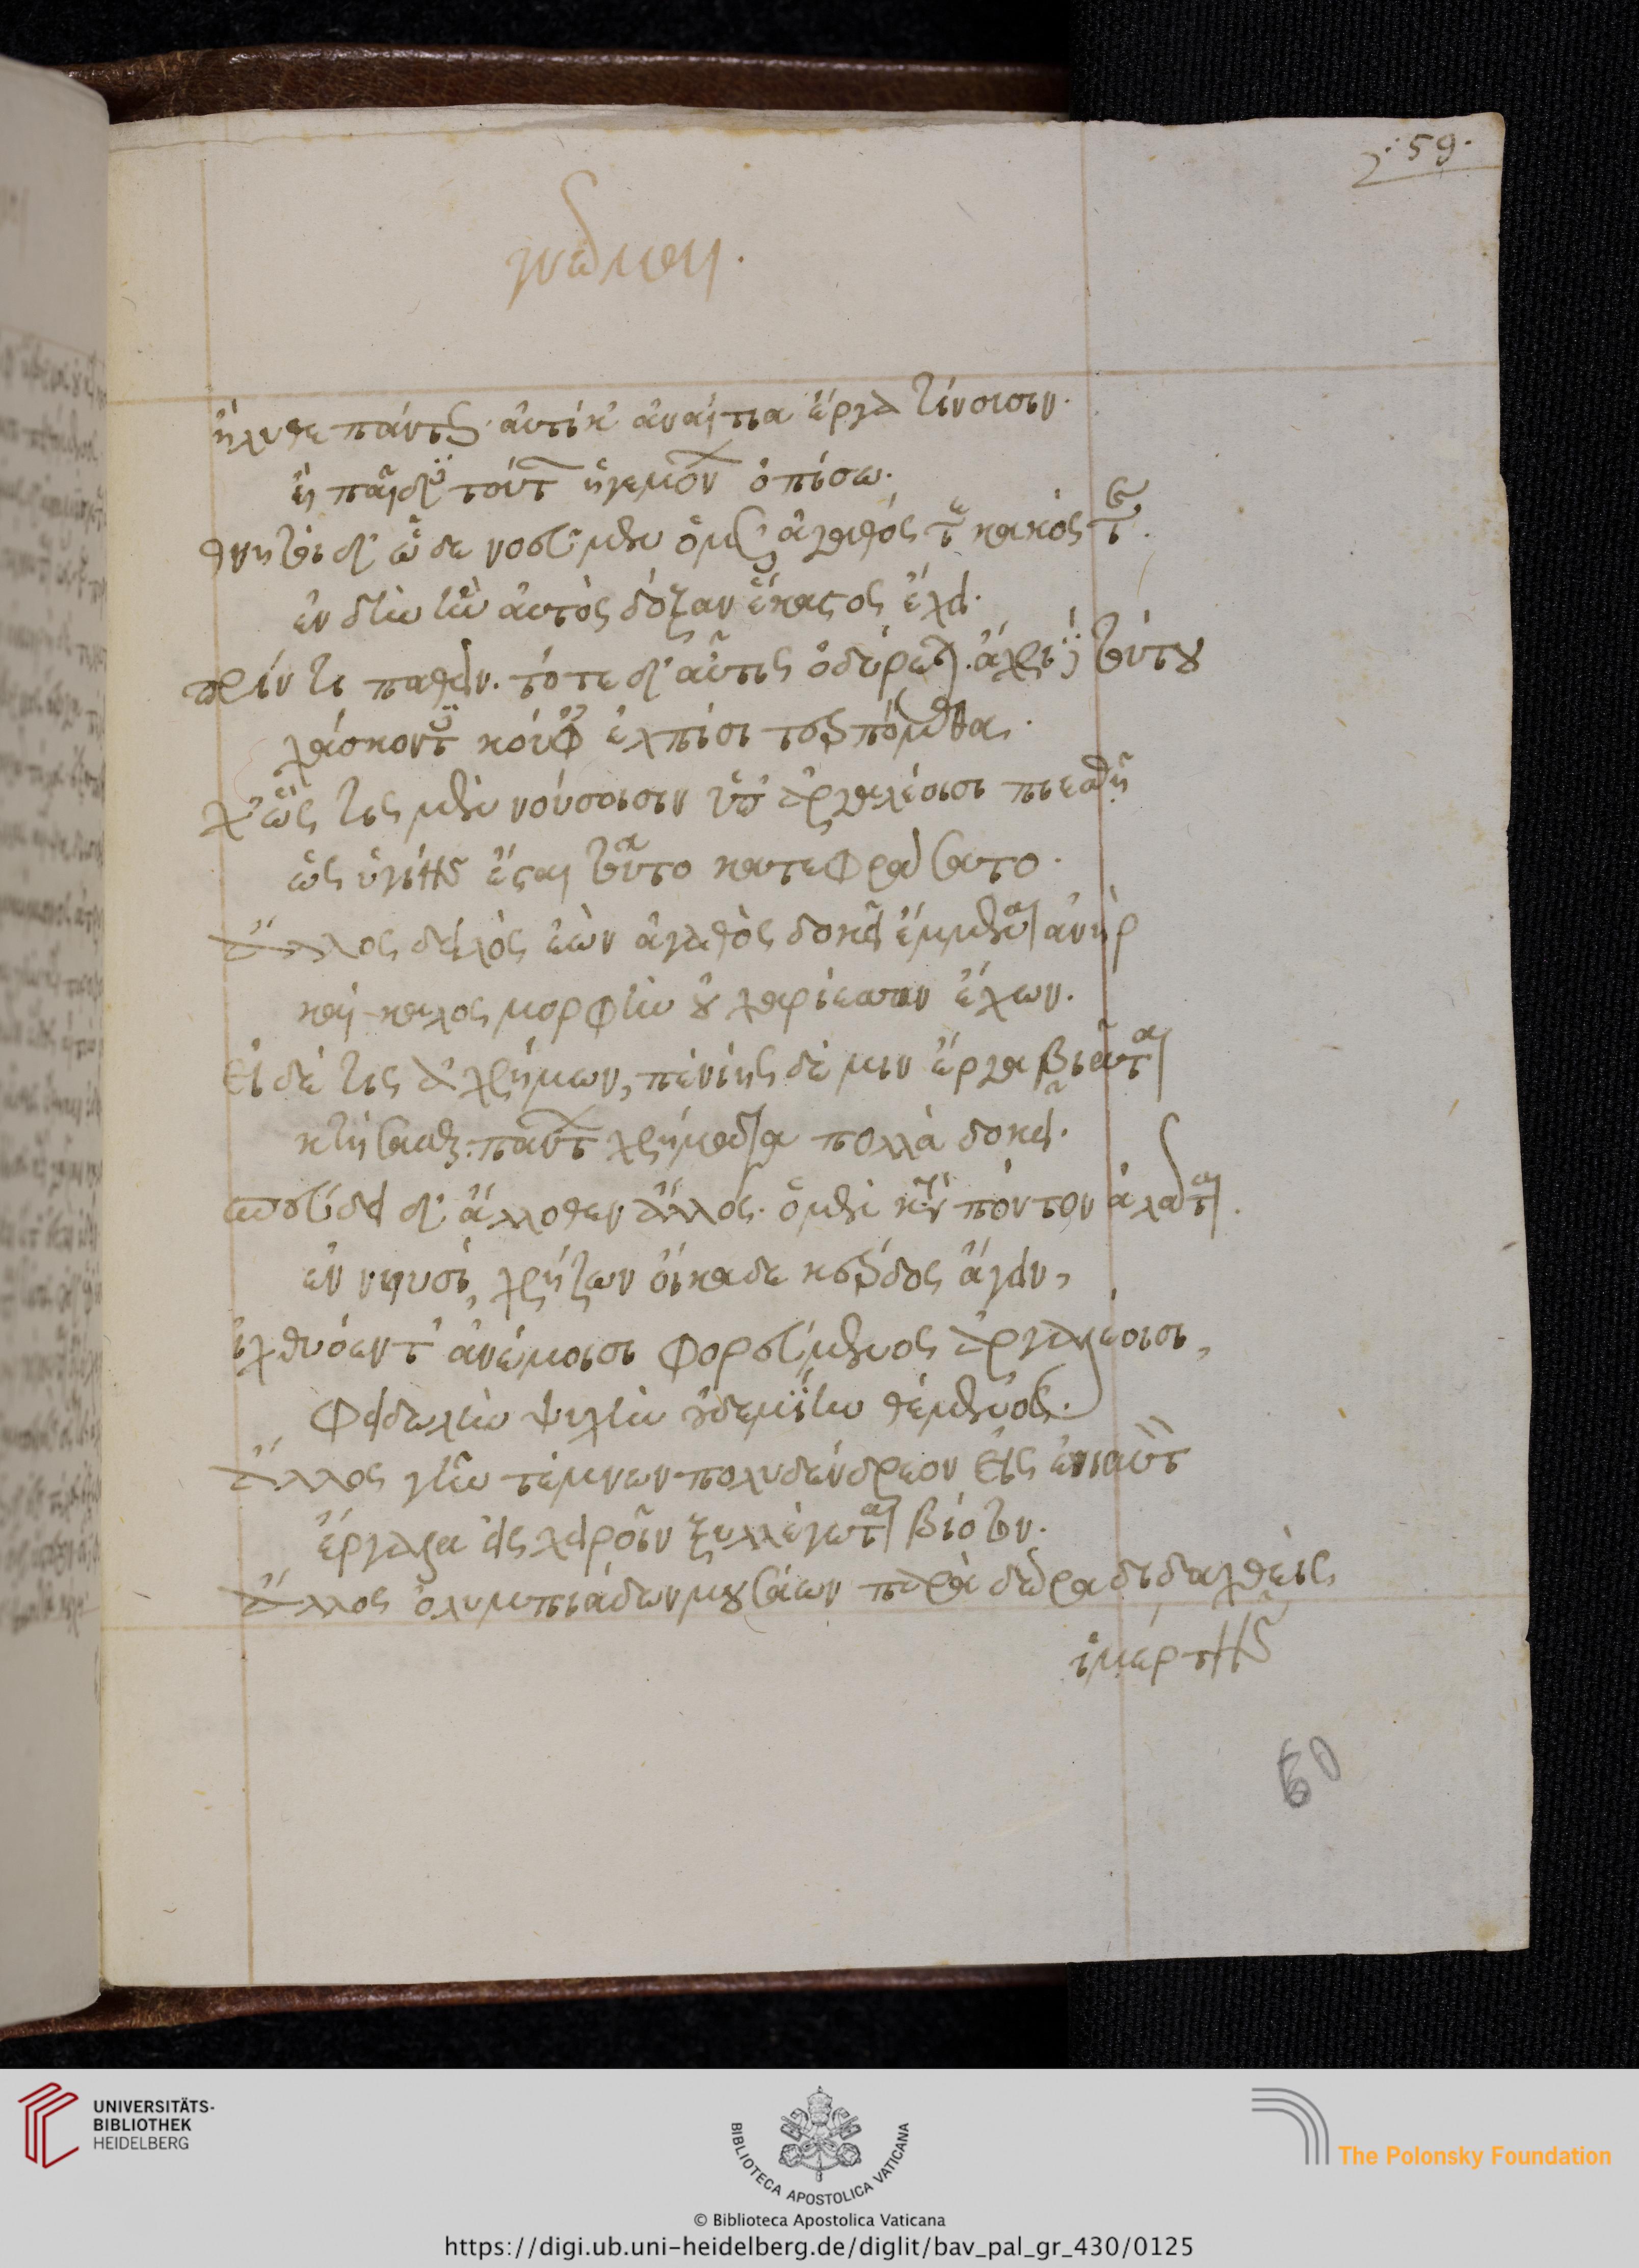 :59.
γνῶμαι.
ἤλυθε πάντως αὐτίκ' ἀναίτια ἔργα τίνουσιν.
ἢ παῖδες τούτων ἡγεμόνων ὀπίσω.
θνητοὶ δ' ὧδε νοεῦμεν ὁμῶς ἀγαθός τε κακός τε.
ἐν δὴν ἣν αὐτὸς δόξαν ἕκαστος ἔχει.
πρίν τι παθεῖν. τότε δ' αὖτις ὀδύρεται. ἄχρι δὲ τούτου
χάσκοντες κούφαις ἐλπίσι τερπόμεθα.
χ' ὥς τις μὲν νούσοισιν ὑπ' ἀργαλέοισι πιεσθῇ
ὡς ὑγιὴς ἔσται τοῦτο κατεφράσατο.
ἄλλος δειλὸς ἐὼν ἀγαθὸς δοκεῖ ἔμμεναι ἀνήρ
καὶ καλος μορφὴν οὐ χαρίεσσαν ἔχων.
εἰ δέ τις ἀχρήμων, πενίης δέ μιν ἔργα βιᾶται
κτήσασθαι πάντων χρήματα πολλὰ δοκεῖ.
σπεύδει δ' ἄλλοθεν ἄλλος. ὁ μὲν κατὰ πόντον ἀλᾶται.
ἐν νηυσὶ, χρῄζων οἴκαδε κέρδος ἄγειν,
ἰχθυόεντ' ἀνέμοισι φορεύμενος ἀργαλέοισι,
φειδωλὴν ψυχὴν οὐδεμίην θέμενος.
ἄλλος γῆν τέμνων πολυδένδρεον εἰς ἐνιαυτὸν
ξυλλέγεται βίοτον.
ἄλλος ὀλυμπιάδων μουσάων παρὰ δῶρα διδαχθεὶς
ἱμερτῆς
60
UNIVERSITÄTS-
BIBLIOTHEK
HEIDELBERG
BIBLIOTECA APOSTOLICA VATICANA
The Polonsky Foundation
© Biblioteca Apostolica Vaticana
https://digi.ub.uni-heidelberg.de/diglit/bav_pal_gr_430/0125